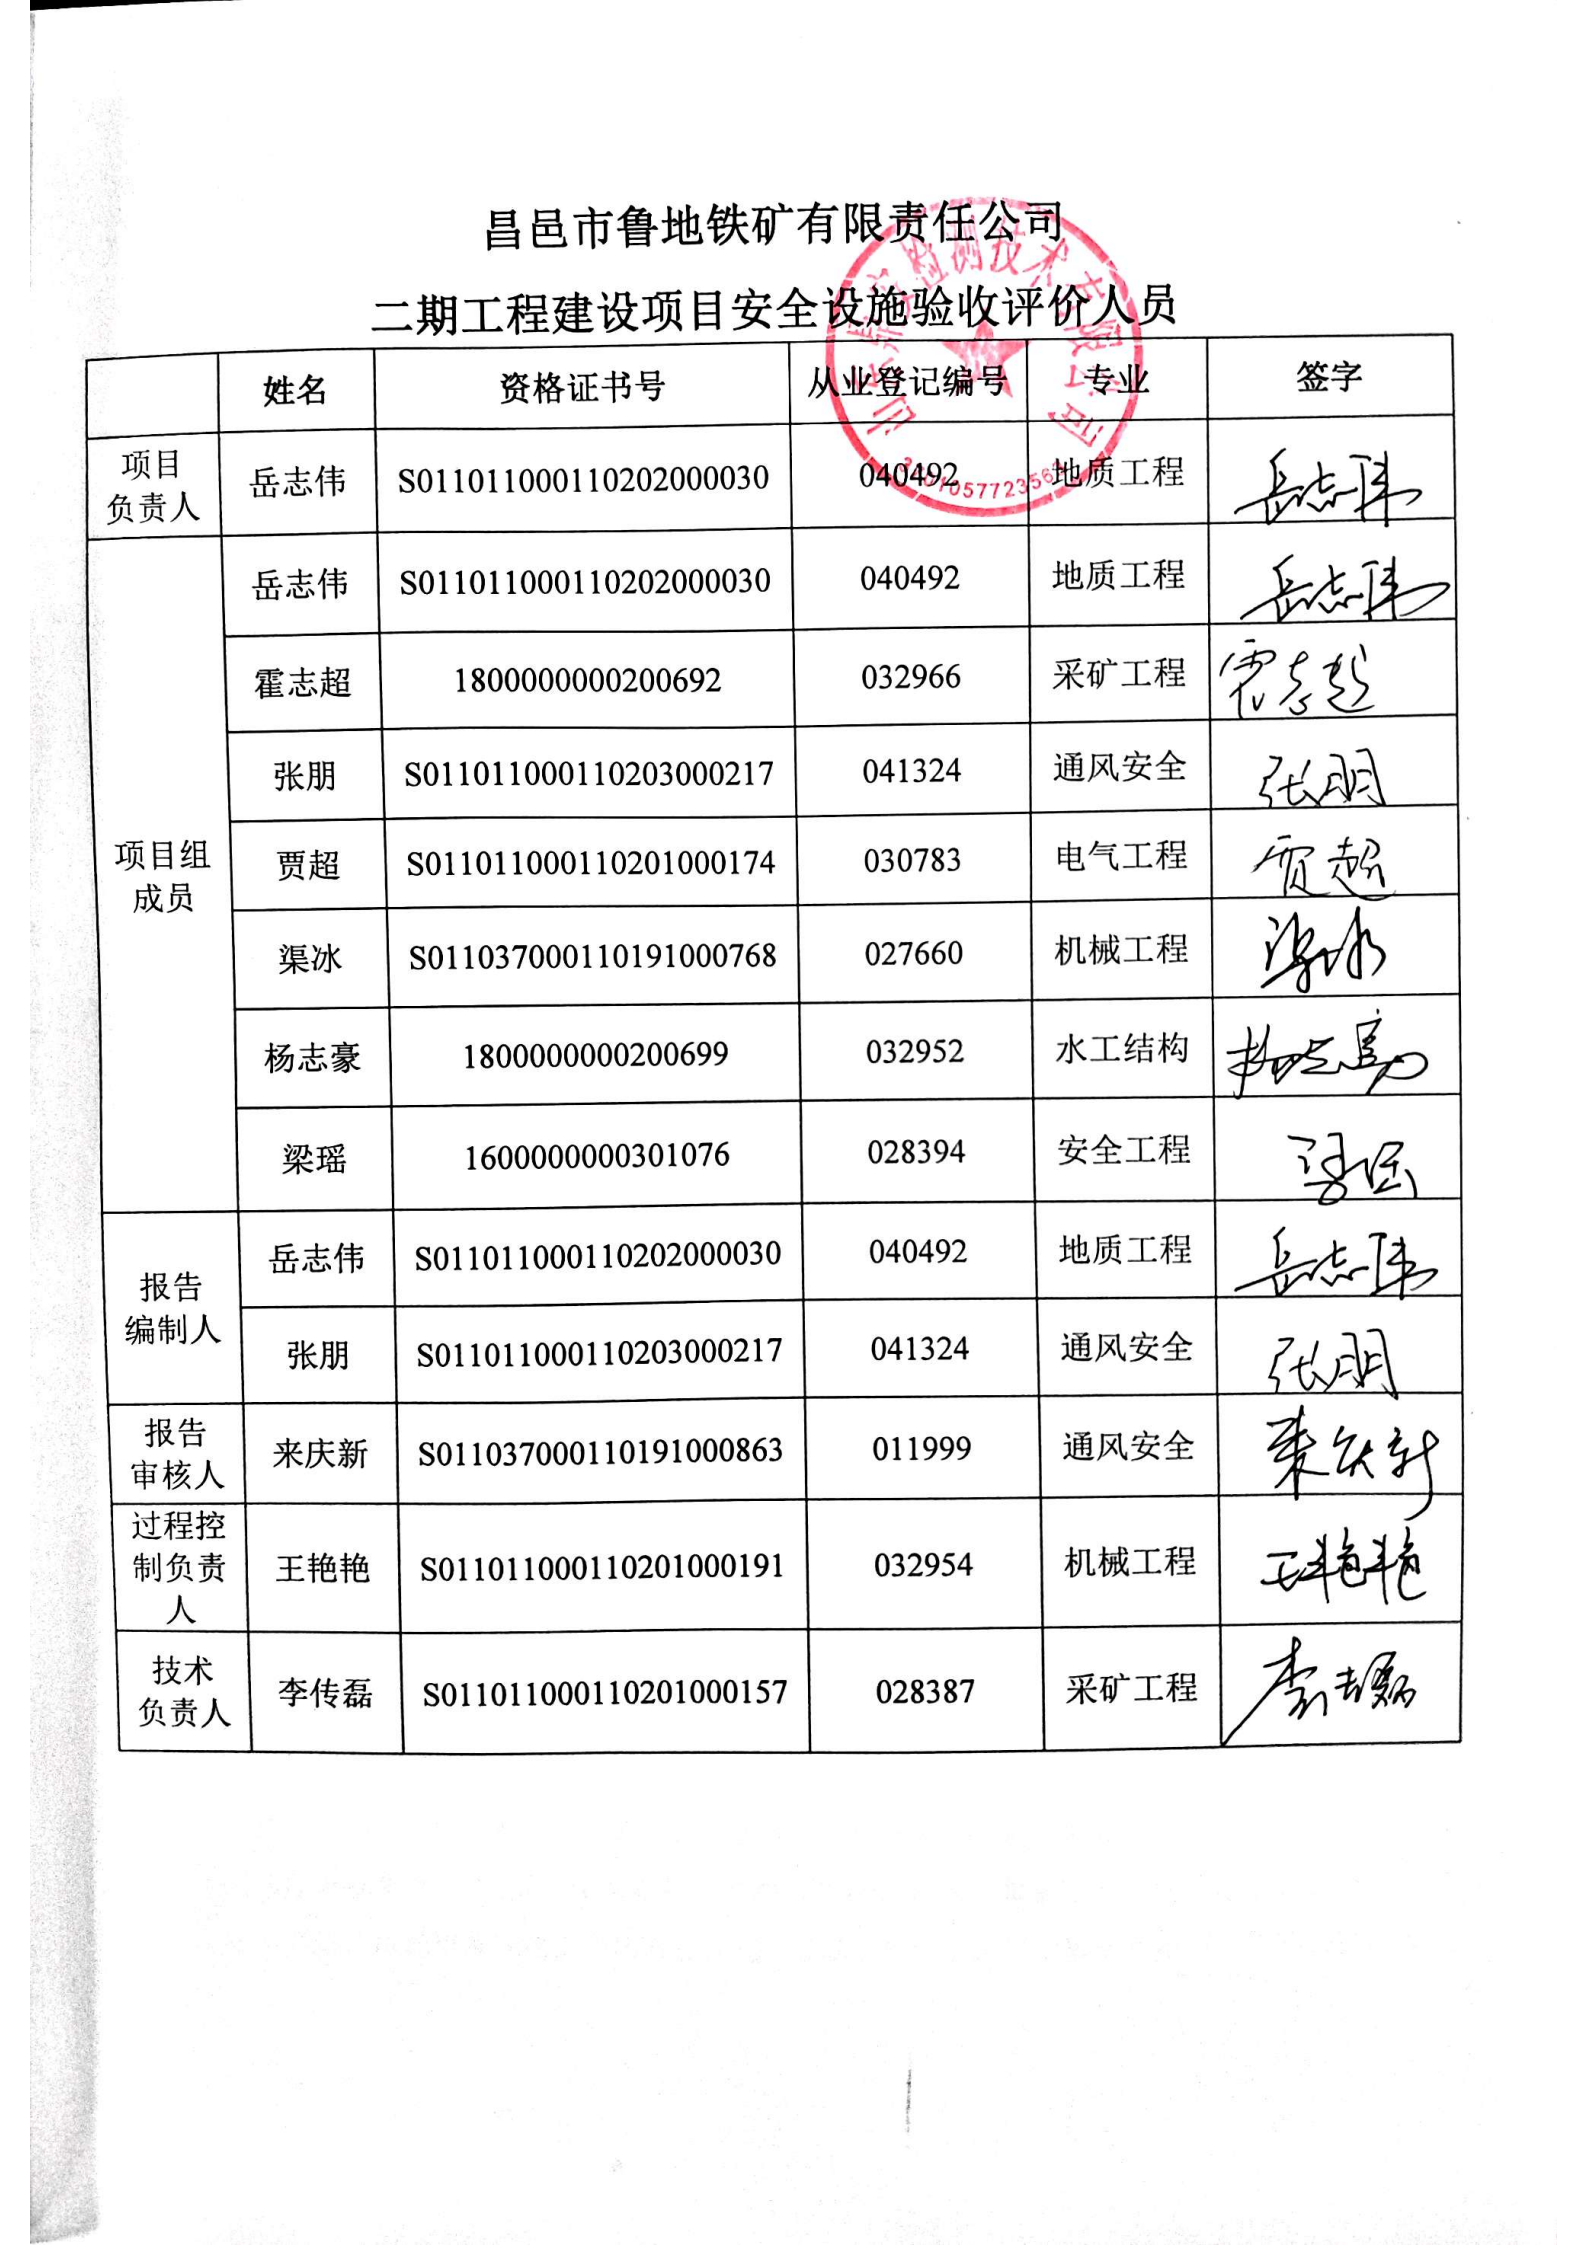 昌邑市鲁地铁矿有限责任公司
二期工程建设项目安全设施验收评价人员
姓名 资格证书号 从业登记编号 专业 签字
项目
负责人 岳志伟 S011011000110202000030 040492 地质工程 岳志伟
项目组
成员
岳志伟 S011011000110202000030 040492 地质工程 岳志伟
霍志超 1800000000200692 032966 采矿工程 霍志超
张朋 S011011000110203000217 041324 通风安全 张朋
贾超 S011011000110201000174 030783 电气工程 贾超
渠冰 S011037000110191000768 027660 机械工程 渠冰
杨志豪 1800000000200699 032952 水工结构 杨志豪
梁瑶 1600000000301076 028394 安全工程 梁瑶
报告
编制人
岳志伟 S011011000110202000030 040492 地质工程 岳志伟
张朋 S011011000110203000217 041324 通风安全 张朋
报告
审核人 来庆新 S011037000110191000863 011999 通风安全 来庆新
过程控
制负责
人 王艳艳 S011011000110201000191 032954 机械工程 王艳艳
技术
负责人 李传磊 S011011000110201000157 028387 采矿工程 李传磊
检测技术有限公司